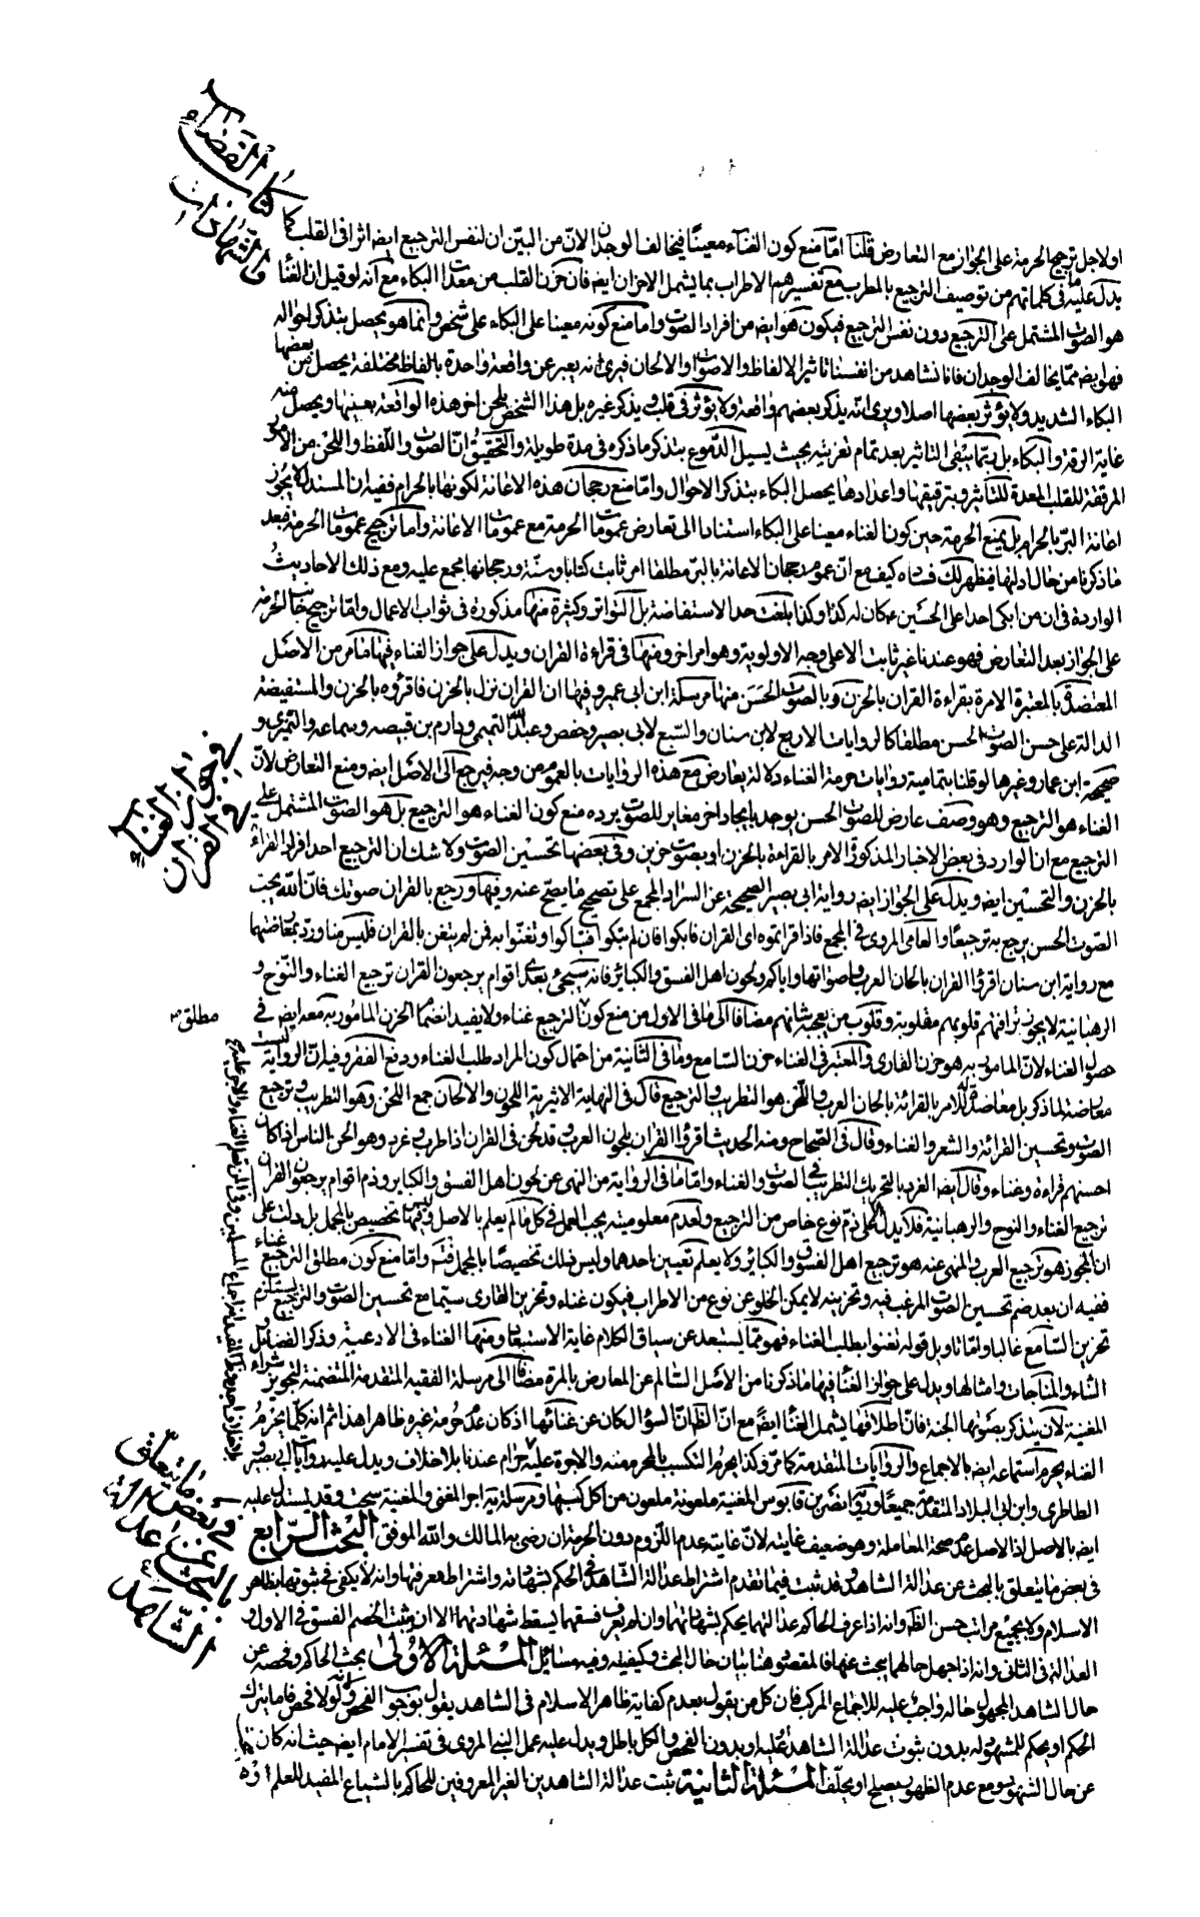 كتاب القضاء
والشهادات
او لاجل ترجيح الحرمة على الجواز مع التعارض قلنا امّا منع كون الغناء معينًا فيخالف الوجدان الا لانّ من البيّن ان لنفس الترجيع ايضا اثرا فى القلب كما
يدلّ عليه ما فى كلماتهم من توصيف الترجيع بالمطرب مع تفسيرهم الاطراب بما يشمل الاحزان ايضا فان حزن القلب من معدات البكاء مع انه لو قيل ان الغناء
هو الصوت المشتمل على الترجيع دون نفس الترجيع فيكون هو ايضا من افراد الصوت واما منع كونه معينا على البكاء على شخص وانما هو يحصل بتذكر احواله
فهو ايضا ممّا يخالف الوجدان فانا نشاهد من انفسنا تاثير الالفاظ والاصوات والالحان فيرى انه يعبر عن واقعة واحدة بالفاظ مختلفة يحصل من بعضها
البكاء الشديد ولا يؤثر بعضها اصلا ويرى انّه يذكر بعضهم واقعة ولا يؤثر فى قلب ويذكر غيره بل هذا الشخص بلحن اخر هذه الواقعة بعينها ويحصل منه
غاية الرقة والبكاء بل ربّما يبقى التاثير بعد تمام تعزيته بحيث يسيل الدموع بتذكر ما ذكره فى مدة طويلة والتحقيق انّ الصوت واللفظ واللحن من الامور
المرققة للقلب المعدة للتاثر وبترقيقها واعدادها يحصل البكاء بتذكر الاحوال وامّا منع رجحان هذه الاعانة لكونها بالحرام ففيه ان المسند لا يجوّز
اعانة البرّ بالحرام بل يمنع الحرمة حين كون الغناء معينا على البكاء استنادا الى تعارض عمومات الحرمة مع عمومات الاعانة واما ترجيح عمومات الحرمة فبعد
ما ذكرنا من حال ادلتها يظهر لك فساده كيف مع انّ عموم رجحان الاعانة بالبرّ مطلقا امر ثابت كتابا وسنّة ورجحانها مجمع عليه ومع ذلك الاحاديث
الواردة فى ان من ابكى احدا على الحسين ع كان له كذا وكذا بلغت حد الاستفاضة بل التواتر وكثرة منها مذكورة فى ثواب الاعمال وامّا ترجيح جانب الحرمة
على الجواز بعد التعارض فهو عندنا غير ثابت الا على وجه الاولوية وهو امر اخر ومنها فى قراءة القران ويدلّ على جواز الغناء فيها ما مر من الاصل
المعتضد بالمعتبرة الامرة بقراءة القران بالحزن وبالصوت الحسن منها مرسلة ابن ابى عمير وفيها ان القران نزل بالحزن فاقرؤه بالحزن والمستفيضة
الدالة على حسن الصوت الحسن مطلقا كالروايات الاربع لابن سنان والسّبع لابى بصير وحفص وعبد الله التميمى ودارم بن قبيصه وسماعه والنميرى و
صحيحة ابن عمار وغيرها لو قلنا بتمامية روايات حرمة الغناء دلالة يعارض مع هذه الروايات بالعموم من وجه فيرجع الى الاصل ايضا ومنع التعارض لانّ
فى جواز الغناء
فى القران
الغناء هو الترجيع وهو وصف عارض للصوت الحسن يوجد بايجاد اخر مغاير للصوت يرده منع كون الغناء هو الترجيع بل هو الصوت المشتمل على
الترجيع مع ان الوارد فى بعض الاخبار المذكورة الامر بالقراءة بالحزن او بصوت حزين وفى بعضها تحسين الصوت ولا شك ان الترجيع احد افراد القراءة
بالحزن والتحسين ايضا ويدلّ على الجواز ايضا رواية ابى بصير الصحيحة عن السراد المجمع على تصحيح ما يصحّ عنه وفيها ورجع بالقران صوتك فانّ الله يحبّ
الصوت الحسن يرجع به ترجيعًا والعامى المروى فى المجمع فاذا قراتموه اى القران فابكوا فان لم تبكوا فتباكوا وتغنّوا به فمن لم يتغن بالقران فليس منا وردّ بمعارضتها
مع رواية ابن سنان اقرؤا القران بالحان العرب واصواتها واياكم ولحون اهل الفسق والكبائر فانه سيجئ بعدى اقوام يرجعون القران ترجيع الغناء والنّوح و
الرهبانية لا يجوز تراقيهم قلوبهم مقلوبة وقلوب من يعجبه شانهم مضافا الى ما فى الاول من منع كون الترجيع غناء ولا يفيد انضمام الحزن المامور به معه ايضا فى
مطلق م
حصول الغناء لانّ المامور به هو حزن القارى والمعتبر فى الغناء حزن السامع وما فى الثانية من احتمال كون المراد طلب الغناء ودفع الفقر وفيه انّ الرواية ليست
معارضة لما ذكر بل معاضدة للامر بالقرائة بالحان العرب واللحن هو التطريب والترجيع قال فى النهاية الاثيرية اللحون والالحان جمع اللحن وهو التطريب وترجيع
الصوت وتحسين القرائة والشعر والغناء وقال فى الصحاح ومنه الحديث اقرؤا القران بلحون العرب وقد لحن فى القران اذا طرب وغرد وهو الحن الناس اذا كان
احسنهم قراءة وغناء وقال ايضا الغرد بالتحريك التطريب فى الصوت والغناء وامّا ما فى الرواية من النهى عن لحون اهل الفسق والكبائر وذم اقوام يرجعون القران
ترجيع الغناء والنوح والرهبانية فلا يدلّ الا على ذمّ نوع خاص من الترجيع ولعدم معلوميته يجب العمل فى كل ما لم يعلم بالاصل وليس فيها تخصيص بالمجمل بل دلت على
ان المجوز هو ترجيع العرب والمنهى عنه هو ترجيع اهل الفسوق والكبائر ولا يعلم تعيين احدهما وليس ذلك تخصيصًا بالمجمل فتم وامّا منع كون مطلق الترجيع غناء
ففيه ان بعد ضم تحسين الصوت المرغب فيه وتحزينه لا يمكن الخلو عن نوع من الاطراب فيكون غناء وتحزين القارى سيّما مع تحسين الصوت والترجيع يستلزم
تحزين السّامع غالبا وامّا تاويل قوله تغنوا بطلب الغناء فهو ممّا يستبعد عن سياق الكلام غاية الاستبعاد ومنها الغناء فى الادعية وذكر الفضايل و
الثناء والمناجات وامثالها ويدل على جواز الغناء فيها ما ذكرنا من الاصل السّالم عن المعارض بالمرة مضافا الى مرسلة الفقيه المتقدمة المتضمنة لتجويز شراء
المغنية لان يتذكر بصوتها الجنة فانّ اطلاقها يشمل الغناء ايضًا مع انّ الظ انّ السؤال كان عن غنائها اذ كان عدم حرمة غيره ظاهرا هذا ثم انه كلّما يحرم
الغناء يحرم استماعه ايضا بالاجماع والروايات المتقدمة كما مرّ وكذا يحرم التكسب بالمحرم منه والاجرة عليه حرام عندنا بلا خلاف ويدل عليه روايات ابى بصير و
الطاطرى وابن ابى البلاد المتقدمة جميعًا ورواية نضر بن قابوس المغنية ملعونة ملعون من اكل كسبها ومرسلة يه اجر المغنى والمغنية سحت وقد يستدل عليه
فى بعض ما يتعلق
بالبحث عن عدالة
الشاهد
ايضا بالاصل اذ الاصل عدم صحة المعاملة وهو ضعيف غايته لانّ غايته عدم اللزوم دون الحرمة ان رضى به المالك والله الموفق البحث الرّابع
فى بعض ما يتعلق بالبحث عن عدالة الشاهد وقد ثبت فيما تقدم اشتراط عدالة الشاهد فى الحكم بشهادته واشتراط معرفتها وانه لا يكفى فى ثبوتها بظاهر
الاسلام ولا بجميع مراتب حسن الظ وانه اذا عرف الحاكم عدالتهما يحكم بشهادتهما وان لم يعرف فسقهما يسقط شهادتهما الا ان يثبت الخصم الفسق فى الاول و
العدالة فى الثانى وانه اذا جهل حالهما يبحث عنها فالمقصود هنا بيان حال البحث وكيفيته وفيه مسائل المسئلة الاولى بحث الحاكم وفحصه عن
حال الشاهد المجهول حاله واجب عليه للاجماع المركب فان كل من يقول بعدم كفاية ظاهر الاسلام فى الشاهد يقول بوجوب الفحص ولانه لو لا فحص فاما يترك
الحكم او يحكم للمشهود له بدون ثبوت عدالة الشاهد او عليه او بدون الفحص والكل باطل ويدل عليه عمل النبى المروى فى تفسير الامام ايضا حيث انه كان
عن حال الشهود ومع عدم الظهور يصلح او يحلّف المسئلة الثانية تثبت عدالة الشاهدين الغير المعروفين للحاكم بالشياع المفيد للعلم او